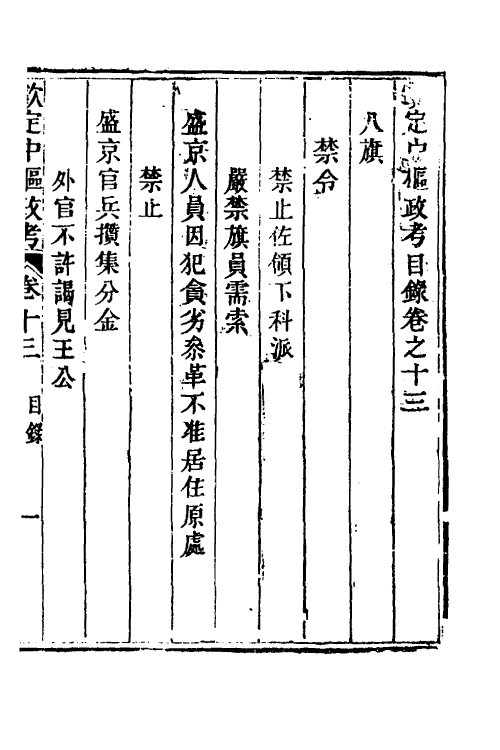 欽定中樞政考目錄卷之十三
八旗
禁令
禁止佐領下科派
嚴禁旗員需索
盛京人員因犯貪劣叅革不准居住原處
禁止
盛京官兵攢集分金
外官不許謁見王公
欽定中樞政考 卷十三 目錄 一